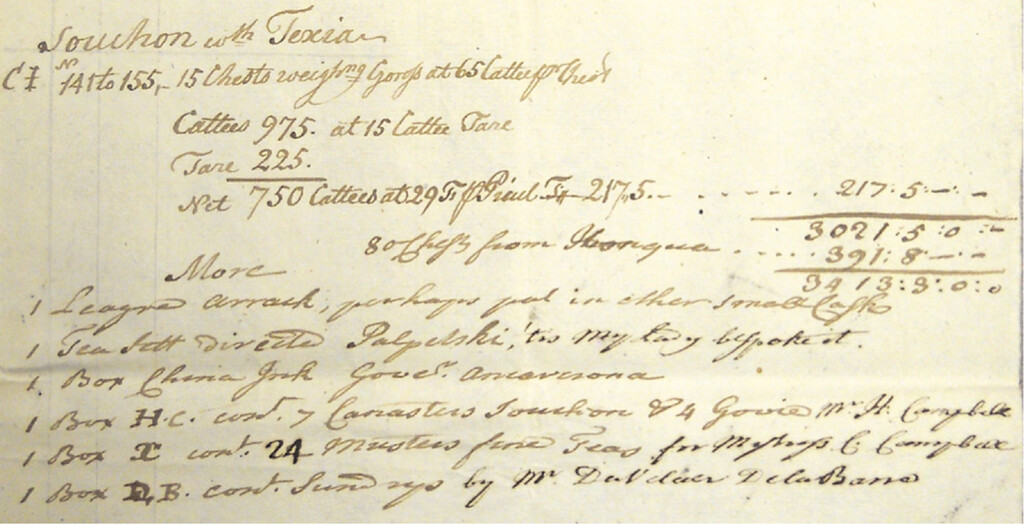 Souchon wth Texia
CI No 141 to 155,- 15 Chests weighng Gross at 65 Cattee pr Chest
Cattees 975. at 15 Cattee Tare
Tare 225.
Net 750 Cattees at 29 T pr Picul T 217,5.- - - - - - 217:5:-:-
3021:5:0:-
80 Chests from Honqua - - - - 391:8-:-
More 3413:3:0:0
1 Leagre arrack, perhaps put in other small Casks
1 Tea Sett directed Palpelski, 'tis my lady bespoke it.
1. Box China Ink Govr.
1 Box H.C. cont. 7 Canasters Souchon & 4 Govie Mr. H. Campbell
1 Box X cont. 24 Musters fine Teas for C Campbell
1 Box D,B. cont. Sundrys by Mr. Du Velaer Dela Barre